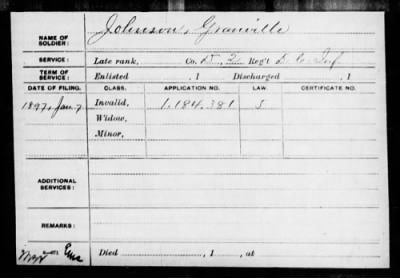 NAME OF SOLDIER: Johnson, Granville
SERVICE: Late rank, Co. D, 2 Reg't D. C. Inf
TERM OF SERVICE: Enlisted , 1 Discharged , 1
DATE OF FILING. CLASS. APPLICATION NO. LAW. CERTIFICATE NO.
1897, Jan. 7 Invalid, 1.184.381 J
Widow,
Minor,
ADDITIONAL SERVICES:
REMARKS:
Died , 1 , at